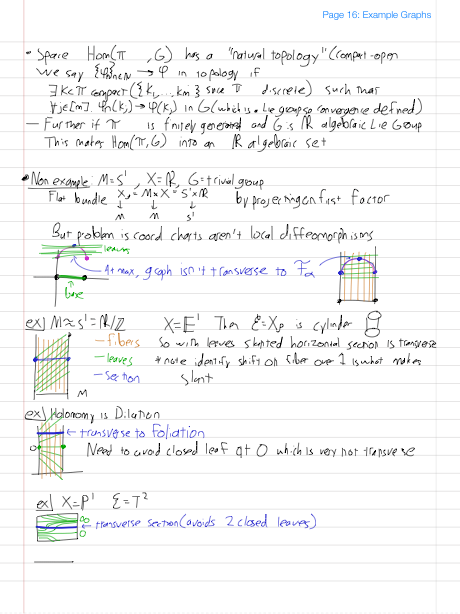 Page 16: Example Graphs
• Space Hom(π, G) has a "natural topology" (compact-open
We say {φn}n∈ℕ → φ in topology if
∃ K⊂π compact ({k1, ... km} since π discrete) such that
∀j∈[m], φn(kj) → φ(kj) in G (which is a Lie group so convergence defined)
— Further if π is finitely generated and G is ℝ algebraic Lie Group
This makes Hom(π, G) into an ℝ algebraic set
• Non example: M=S¹, X=ℝ, G=trivial group
Flat bundle Xρ = M×X = S¹×ℝ by projecting on first factor
↓ ↓ ↓
M M S¹
But problem is coord charts aren't local diffeomorphisms
leaves
At max, graph isn't transverse to Fα
base
ex) M≈S¹=ℝ/ℤ X=E¹ Then ξ=Xρ is cylinder
— fibers So with leaves slanted horizontal section is transverse
— leaves * note identify shift on fiber over 1 is what makes
— section slant
M
ex) Holonomy is Dilation
← transverse to foliation
0 Need to avoid closed leaf at 0 which is very not transverse
ex) X=P¹ ξ=T²
∞
← transverse section (avoids 2 closed leaves)
0